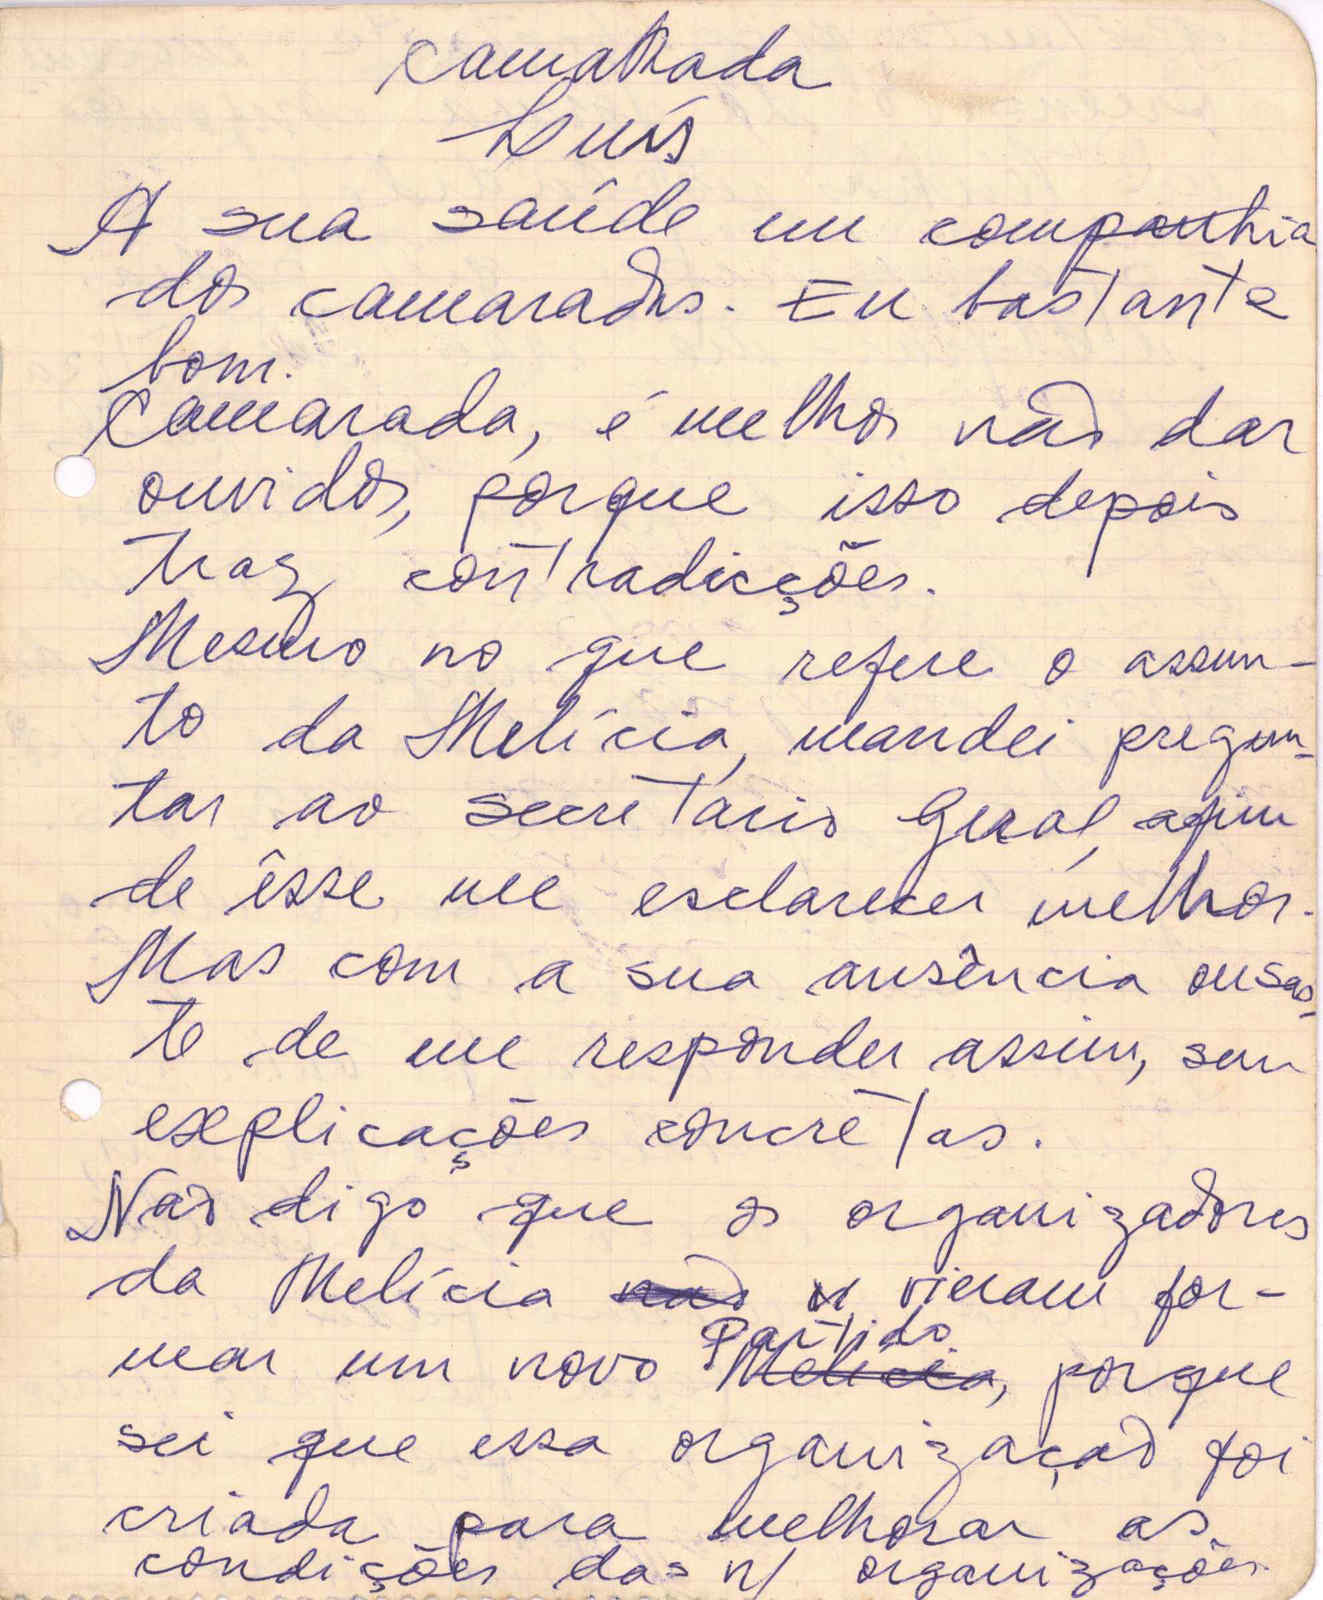 Camarada
Luís
A sua saúde em companhia
dos camaradas. Eu bastante
bom.
Camarada, é melhor não dar
ouvidos, porque isso depois
traz contradicções.
Mesmo no que refere o assun-
to da Melícia, mandei pregun-
tar ao secretário Geral, afim
de êsse me esclarecer melhor.
Mas com a sua ausência ousas-
te de me responder assim, sem
explicações concrêtas.
Não digo que os organizadores
da Melícia não vieram for-
Partido
mar um novo Melícia, porque
sei que essa organização foi
criada para melhorar as
condições das n/ organizações